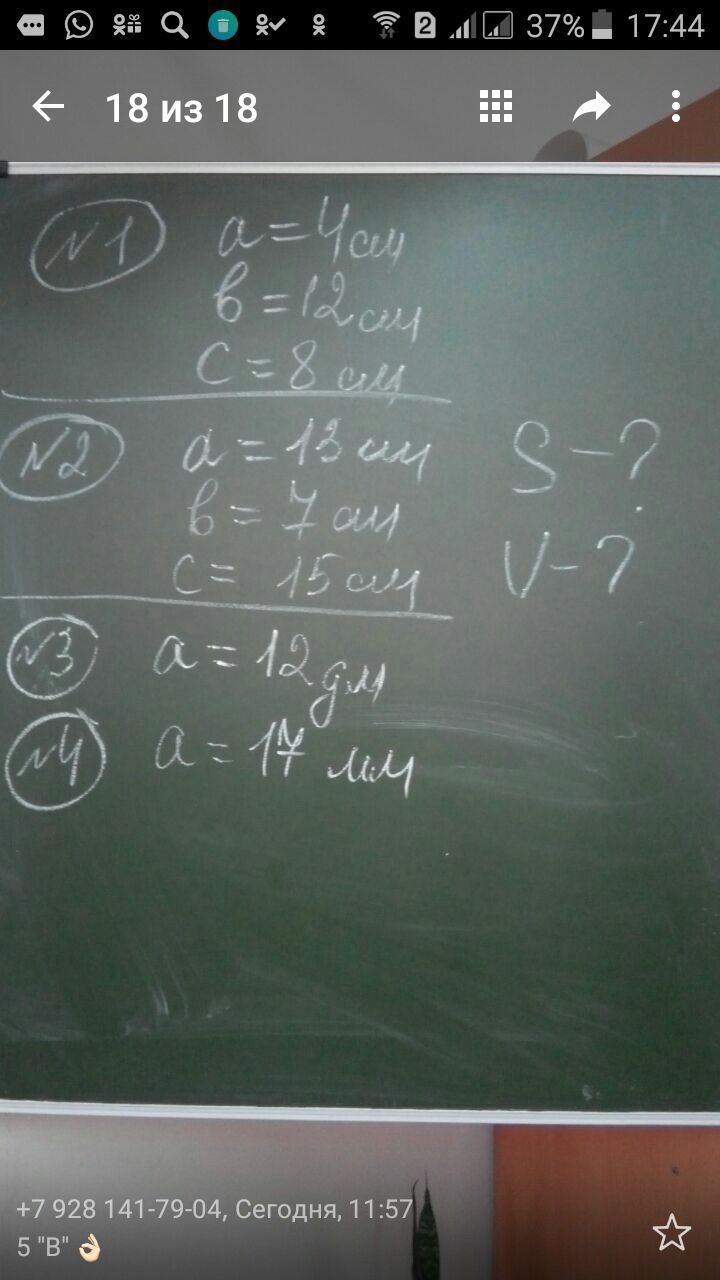 37% 17:44
18 из 18
N1 a = 4 см
в = 12 см
c = 8 см
N2 a = 13 см
в = 7 см
c = 15 см
S - ?
V - ?
N3 a = 12 дм
N4 a = 17 мм
+7 928 141-79-04, Сегодня, 11:57
5 "В" 👌🏻